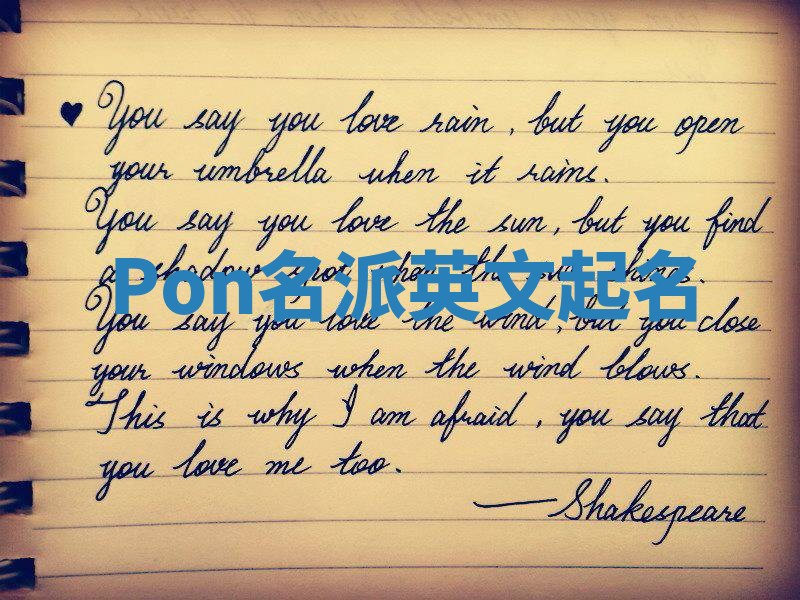 ♥ You say you love rain, but you open
your umbrella when it rains.
You say you love the sun, but you find
a shadow spot when the sun shines.
Pon名派英文起名
You say you love the wind, but you close
your windows when the wind blows.
This is why I am afraid, you say that
you love me too.
—Shakespeare